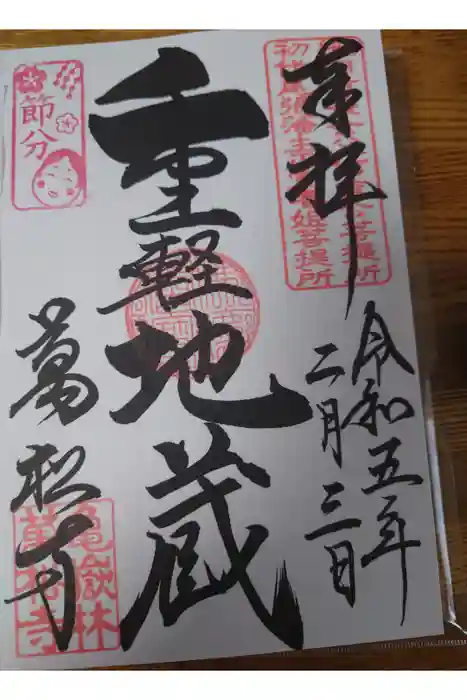 奉拝
令和五年
二月三日
重軽地蔵
萬松寺
節分
亀嶽林
萬松寺